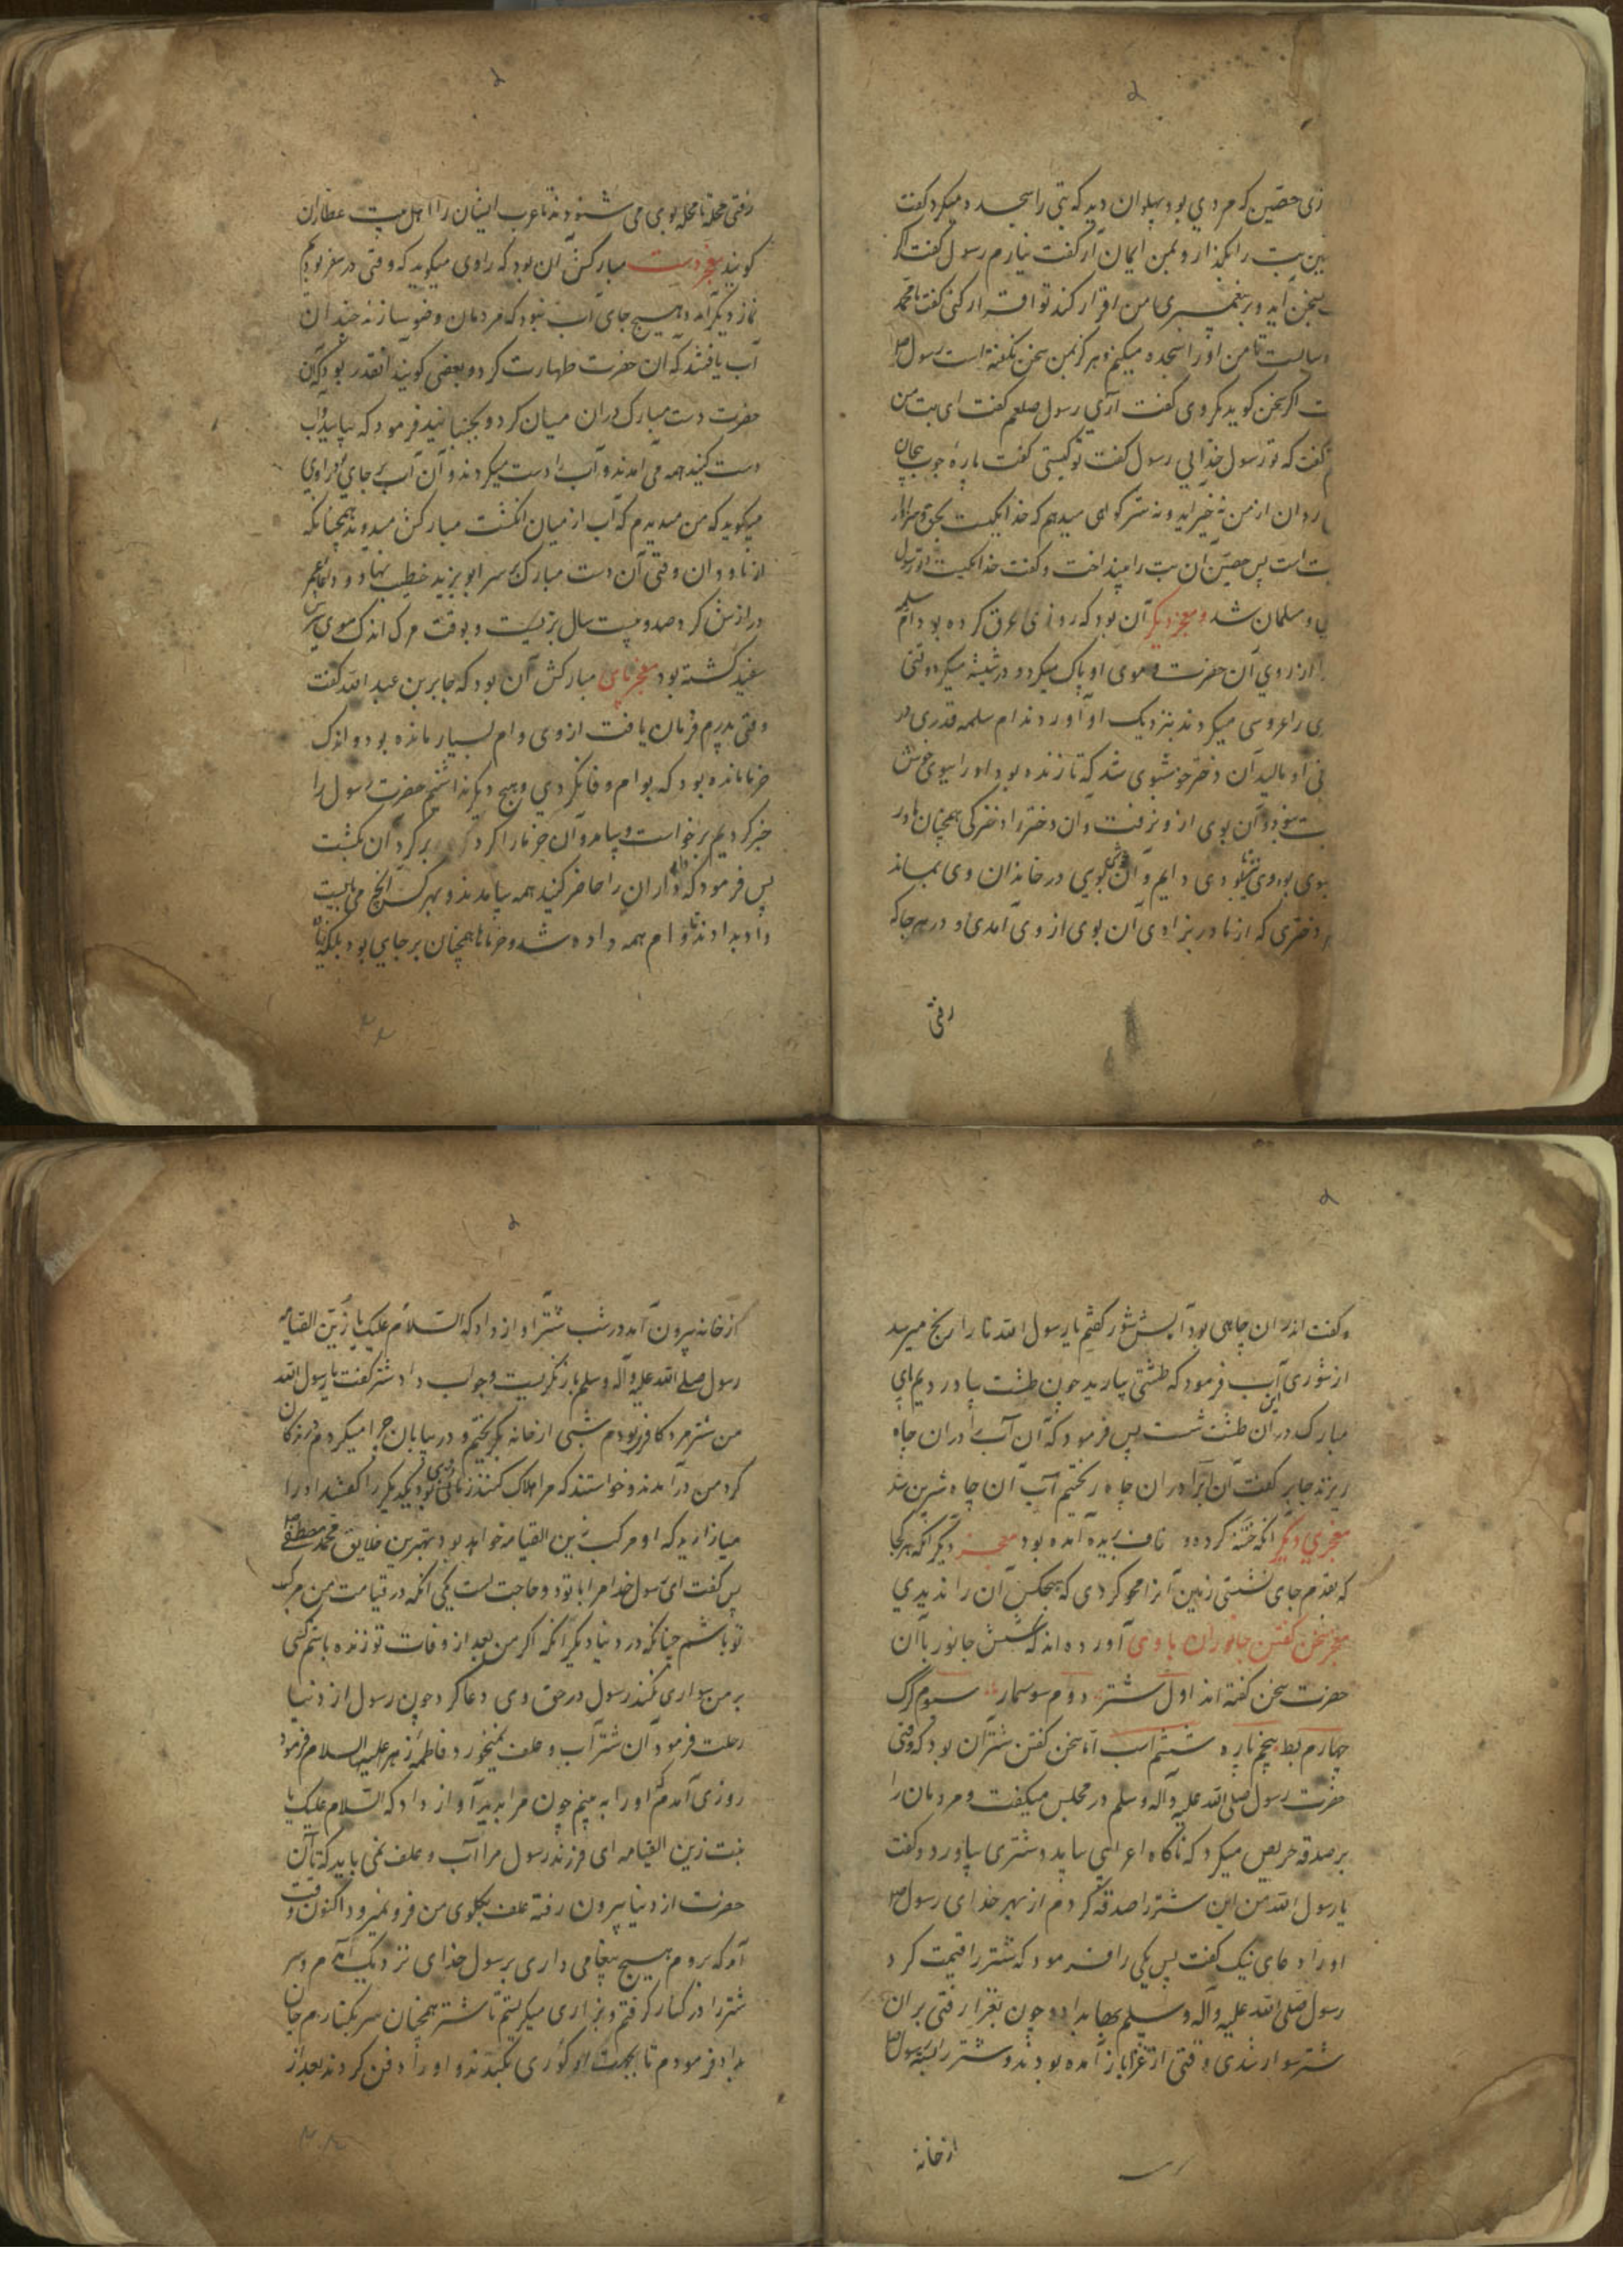 زی حصین که مردی بود پهلوان دید که بتی را سجده میکرد گفت
این بت را بگذار و بمن ایمان آر گفت نیارم رسول گفت اگر
بسخن آید و بر پیغمبری من اقرار کند تو اقرار کنی گفت یا محمد
سالیست تا من او را سجده میکنم و هرگز بمن سخن نگفته است رسول
ت اگر سخن گوید بگروی گفت آری رسول صلعم گفت ای بت من
گفت که تو رسول خدایی رسول گفت تو کیستی گفت پارهٔ چوب بیجان
ردان از من نه خیر آید و نه شر گواهی میدهم که خدا یکیست بحق و سزاوار
ت است پس حصین آن بت را بینداخت و گفت خدا یکیست و تو رسول
ی و مسلمان شد و معجز دیگر آن بود که روزی عرق کرده بود ام سلمه
از روی آن حضرت و موی او پاک میکرد و در شیشه میکرد وقتی
ی را عروسی میکردند بنزدیک او آوردند ام سلمه قدری
نی او مالید آن دختر خوشبوی شد که تا زنده بود او را ببوی خوش
ت نبود و آن بوی از و نرفت و آن دختر را دخترکی همچنان مادر
بوی بودی خوشبودی دایم و آن بوی خوش در خاندان وی بماند
دختری که از مادر بزادی آن بوی از وی آمدی و در هر جا که
رفتی
رفتی محله تا محله بوی می شنودند تا عرب ایشان را اهل بیت عطاران
گویند معجز دست مبارکش آن بود که راوی میگوید که وقتی در سفر بودیم
نماز دیگر آمد و هیچ جای آب نبود که مردمان وضو سازند چندان
آب یافتند که آن حضرت طهارت کرد و بعضی گویند آنقدر بود که آن
حضرت دست مبارک در آن میان کرد و بجنبانید فرمود که بیایید و آب
دست کنید همه می آمدند و آب را دست میکردند و آن آب بر جای بود راوی
میگوید که من میدیدم که آب از میان انگشت مبارکش میدوید همچنانکه
از ناودان وقتی آن دست مبارک بر سر ابو یزید خطیب نهاد و دعای عمر
درازش کرد صد و بیست سال بزیست و بوقت مرگ اندک موی سرش
سفید گشته بود معجز پای مبارکش آن بود که جابر بن عبد الله گفت
وقتی پدرم فرمان یافت از وی وام بسیار مانده بود و اندک
خرما مانده بود که بوام وفا نکردی و هیچ دیگر نداشتیم حضرت رسول را
خبر کردیم برخاست و بیامد و آن خرما را گرد بر گرد آن بگشت
پس فرمود که وام داران را حاضر کنید همه بیامدند و بهر کس آنچ می بایست
داد بدادند تا وام همه داده شد و خرما همچنان بر جای بود
و گفت اندر آن چاهی بود آبش شور گفتیم یا رسول الله ما را رنج میرسد
از شوری این آب فرمود که طشتی بیارید چون طشت بیاوردیم پای
مبارک در آن طشت شست پس فرمود که آن آب را در آن چاه
ریزند جابر گفت آن آبرا در آن چاه ریختیم آب آن چاه شیرین شد
معجزی دیگر آنکه ختنه کرده و ناف بریده آمده بود معجز دیگر آنکه هر کجا
که بقدم جای نشستی زمین آنرا محو کردی که هیچکس آن را ندیدی
معجز سخن گفتن جانوران با وی آورده اند که شش جانور با آن
حضرت سخن گفته اند اول شتر دوم سوسمار سیوم گرگ
چهارم بط پنجم پاره ششم اسب اما سخن گفتن شتر آن بود که وقتی
حضرت رسول صلی الله علیه و آله و سلم در مجلس میگفت و مردمان را
بر صدقه حریص میکرد که ناگاه اعرابی بیامد و شتری بیاورد و گفت
یا رسول الله من این شتر را صدقه کردم از بهر خدای رسول
او را دعای نیک گفت پس یکی را فرمود که شتر را قیمت کرد
رسول صلی الله علیه و آله و سلم بها بداد و چون بغزا رفتی بر آن
شتر سوار شدی وقتی از غزا باز آمده بودند و شتر را بسته رسول
از خانه
از خانه بیرون آمد در شب شتر آواز داد که السلام علیک یا زین القیامه
رسول صلی الله علیه و آله و سلم باز نگریست و جواب داد شتر گفت یا رسول الله
من شتر مرد کافر بودم شبی از خانه بگریختم و در بیابان چرا میکردم گرگان
گرد من در آمدند و خواستند که مرا هلاک کنند زمانی بود یکدیگر را گفتند او را
میازارید که او مرکب زین القیامه خواهد بود بهترین خلایق محمد مصطفی
پس گفت ای رسول خدا مرا با تو دو حاجت است یکی آنکه در قیامت من مرکب
تو باشم چنانکه در دنیا دیگر آنکه اگر من بعد از وفات تو زنده باشم کسی
بر من سواری نکند رسول در حق وی دعا کرد چون رسول از دنیا
رحلت فرمود آن شتر آب و علف نمیخورد فاطمه زهرا علیها السلام فرمود
روزی آمدم که او را به بینم چون مرا بدید آواز داد که السلام علیک یا
بنت زین القیامه ای فرزند رسول مرا آب و علف نمی باید که تا آن
حضرت از دنیا بیرون رفته علف بگلوی من فرو نمیرود اکنون وقت
آمد که بروم هیچ پیغامی داری برسول خدای نزدیک آمدم و سر
شتر را در کنار گرفتم و بزاری میگریستم تا شتر همچنان سر بکنارم جان
بداد فرمودم تا بجهت او گوری بکندند و او را دفن کردند بعد از